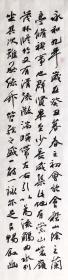 永和九年歲在癸丑暮春之初會於會稽山陰之蘭
亭脩禊事也群賢畢至少長咸集此地有崇山峻領
茂林脩竹又有清流激湍暎帶左右引以為流觴曲水
列坐其次雖無絲竹管弦之盛一觴一詠亦足以暢敘幽